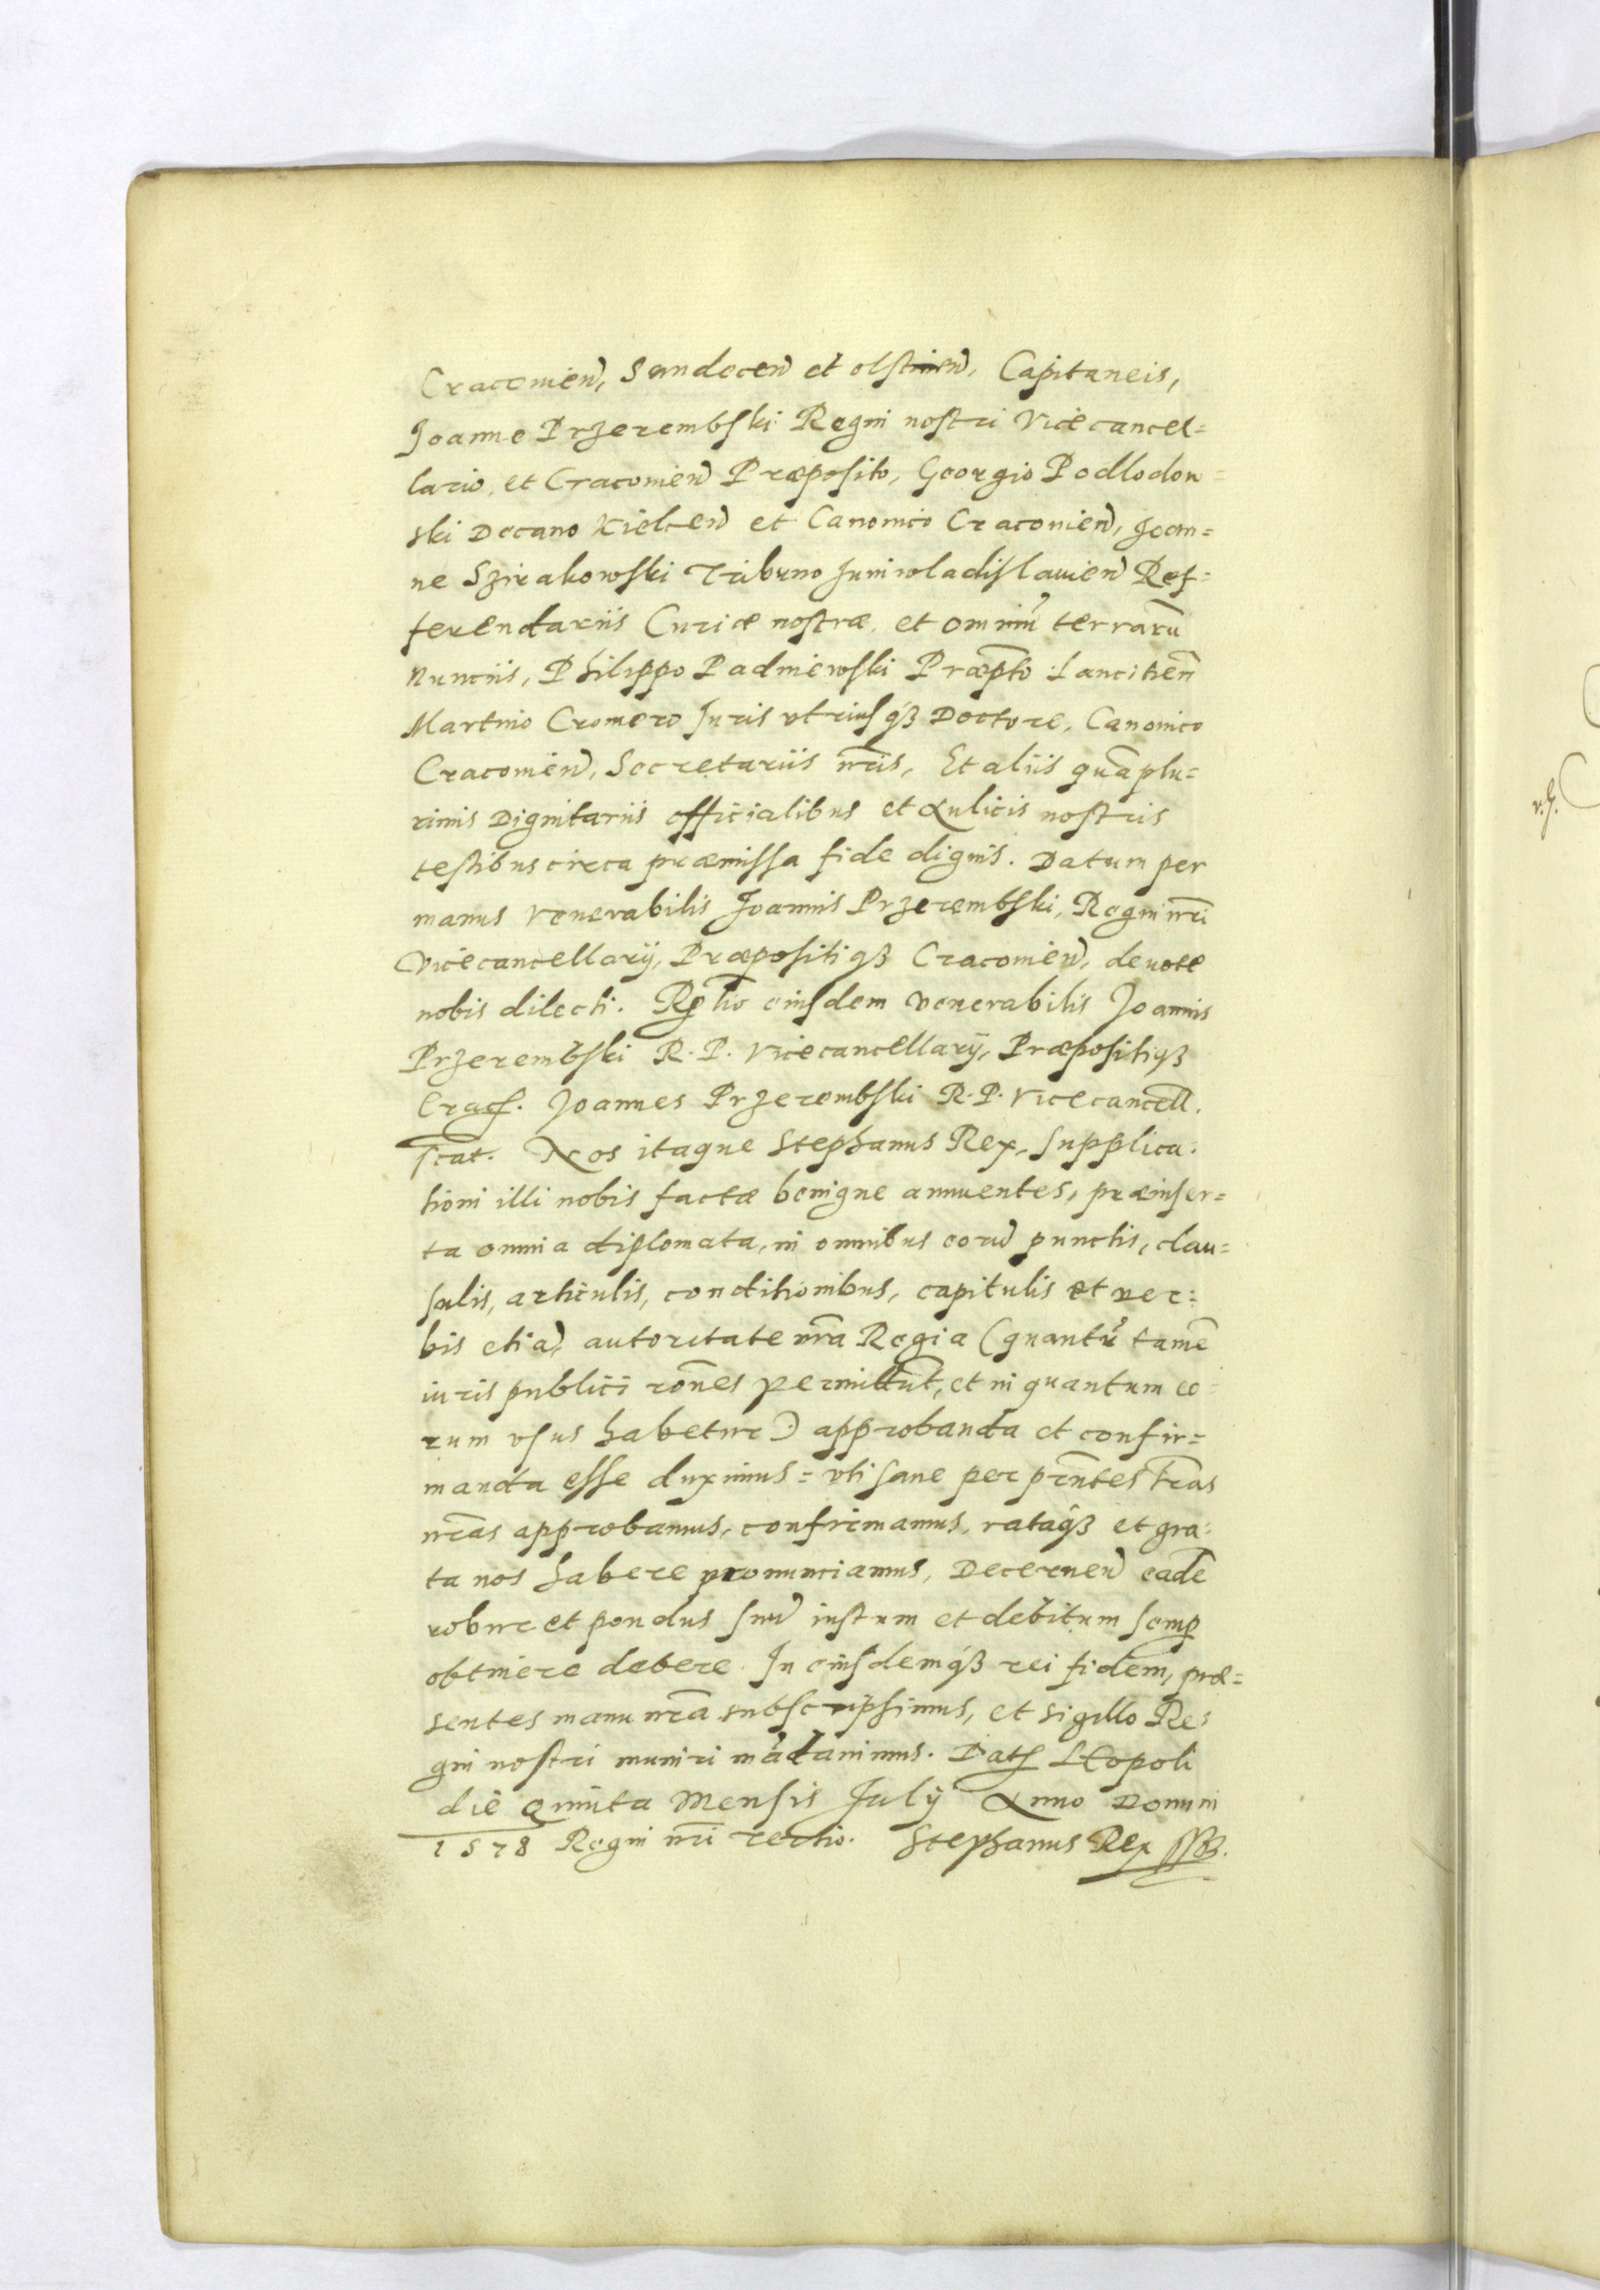 Cracouien̄, Sandecen̄ et olstinen̄, Capitaneis,
Joanne Przerembski Regni nostri Vicecancel=
lario, et Cracouien̄ Præposito, Georgio Podlodow=
ski Decano Kielcen̄ et Canonico Cracouien̄, Joan=
ne Szirakowski Tribuno Juniwladislauien̄ Ref=
ferendariis Curiæ nostræ, et omniū terrarū
Nunciis, Philippo Padniewski Præpto Lancitien̄
Martino Cromero Juris vtriusqʒ Doctore, Canonico
Cracouien̄, Secretariis nr̄is, Et aliis quā plu=
rimis Dignitariis officialibus et Aulicis nostris
testibus circa præmissa fide dignis. Datum per
manus venerabilis Joannis Przerembski, Regni nr̄i
Vicecancellarÿ, Præpositiqʒ Cracouien̄, deuote
nobis dilecti. Rꝑtio eiusdem venerabilis Joannis
Przerembski R. P. Vicecancellarÿ, Præpositiqʒ
Cracꝭ. Joannes Przerembski R. P. Vicecancell.
scat. Nos itaque Stephanus Rex, supplica:
tioni illi nobis factæ benigne annuentes, præinser=
ta omnia diplomata, in omnibus eorū punctis, clau=
sulis, articulis, conditionibus, capitulis et ver:
bis etiā, autoritate nr̄a Regia (quantū tamē
iuris publici rōnes permittūt, et in quantum eo=
rum vsus habetur) approbanda et confir=
manda esse duximus= vti sane per pr̄ntes lr̄as
nr̄as approbamus, confirmamus, rataqʒ et gra:
ta nos habere pronunciamus, Decernen̄ eadē
robur et pondus suū iustum et debitum semꝑ
obtinere debere. In eiusdemqʒ rei fidem, præ=
sentes manu nr̄a subscripsimus, et sigillo Re=
gni nostri muniri mādauimus. Datꝭ Leopoli
die Quinta Mensis Julÿ Anno Domini
1578 Regni nr̄i tertio. Stephanus Rex sst.